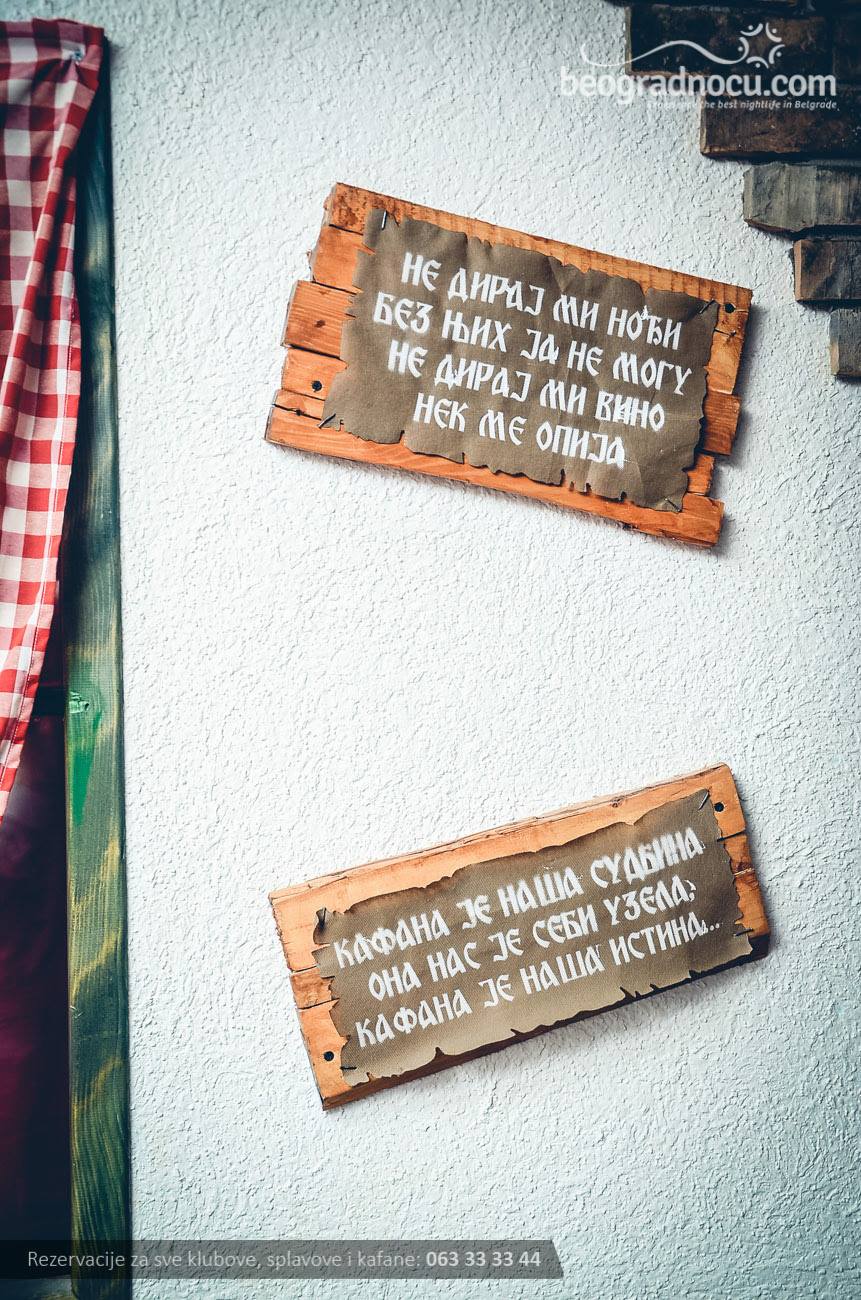 beogradnocu.com
Experience the best nightlife in Belgrade
НЕ ДИРАЈ МИ НОЋИ
БЕЗ ЊИХ ЈА НЕ МОГУ
НЕ ДИРАЈ МИ ВИНО
НЕК МЕ ОПИЈА
КАФАНА ЈЕ НАША СУДБИНА
ОНА НАС ЈЕ СЕБИ УЗЕЛА,
КАФАНА ЈЕ НАША ИСТИНА...
Rezervacije za sve klubove, splavove i kafane: 063 33 33 44